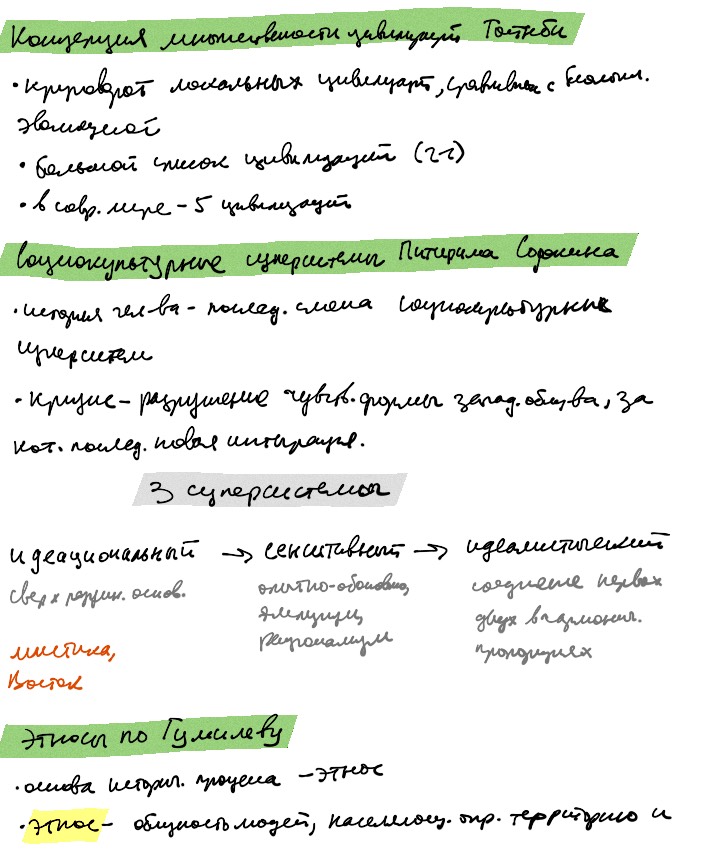 Концепция множественности цивилизаций Тойнби
• круговорот локальных цивилизаций, сравнивал с биологич.
эволюцией
• большой список цивилизаций (21)
• в совр. мире – 5 цивилизаций
Социокультурные суперсистемы Питирима Сорокина
• история чел-ва – послед. смена социокультурных
суперсистем
• кризис – разрушение чувств. формы запад. общ-ва, за
кот. послед. новая интеграция.
3 суперсистемы
идеациональный → сенситивный → идеалистический
сверх рацион. основ. опытно-обоснованно, соединение первых
эмпиризм, двух в гармонич.
рационализм пропорциях
мистика,
Восток
Этносы по Гумилеву
• основа историч. процесса – этнос
• этнос – общность людей, населяющ. опр. территорию и